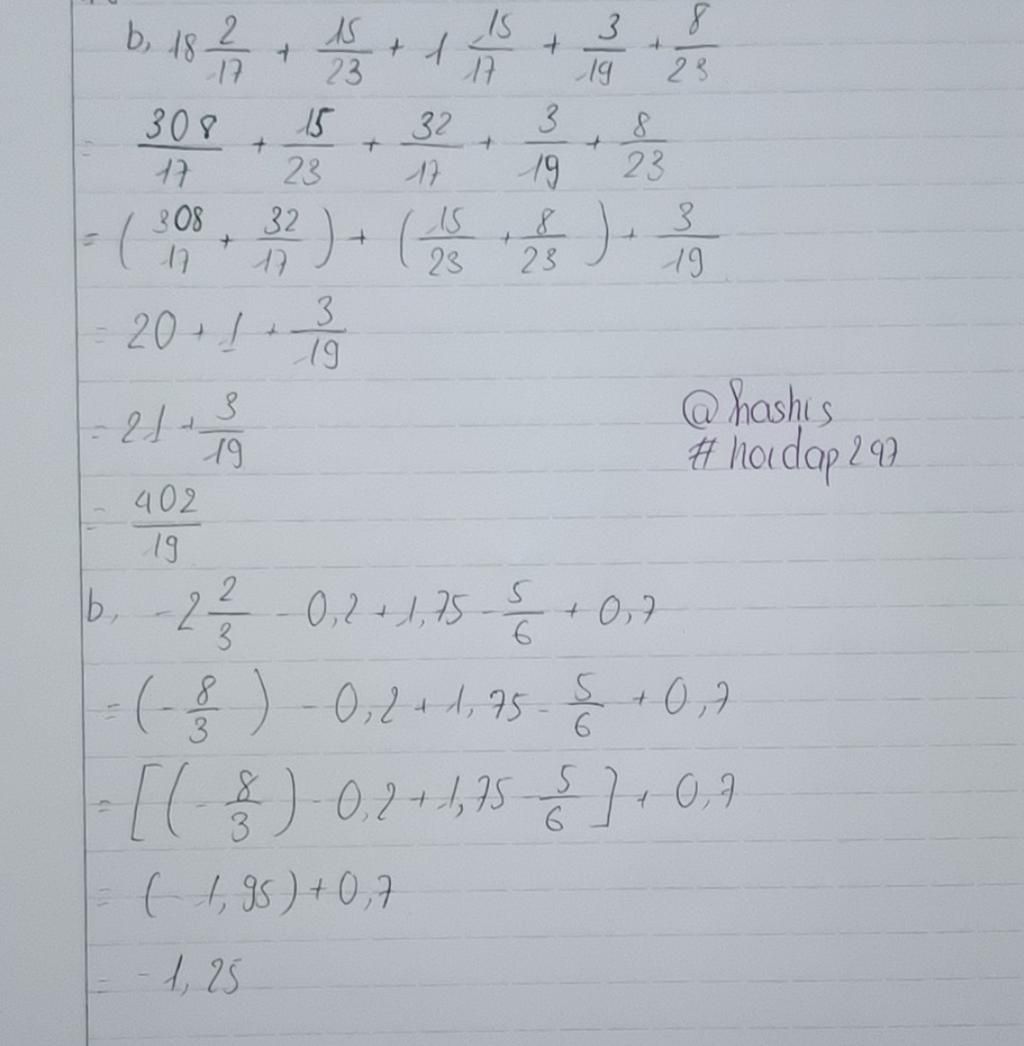 b, 18 2/17 + 15/23 + 1 15/17 + 3/19 + 8/23
= 308/17 + 15/23 + 32/17 + 3/19 + 8/23
= (308/17 + 32/17) + (15/23 + 8/23) + 3/19
= 20 + 1 + 3/19
= 21 + 3/19
@hashis
#hoidap247
= 402/19
b, -2 2/3 - 0,2 + 1,75 - 5/6 + 0,7
= (-8/3) - 0,2 + 1,75 - 5/6 + 0,7
= [(-8/3) - 0,2 + 1,75 - 5/6] + 0,7
= (-1,95) + 0,7
= -1,25